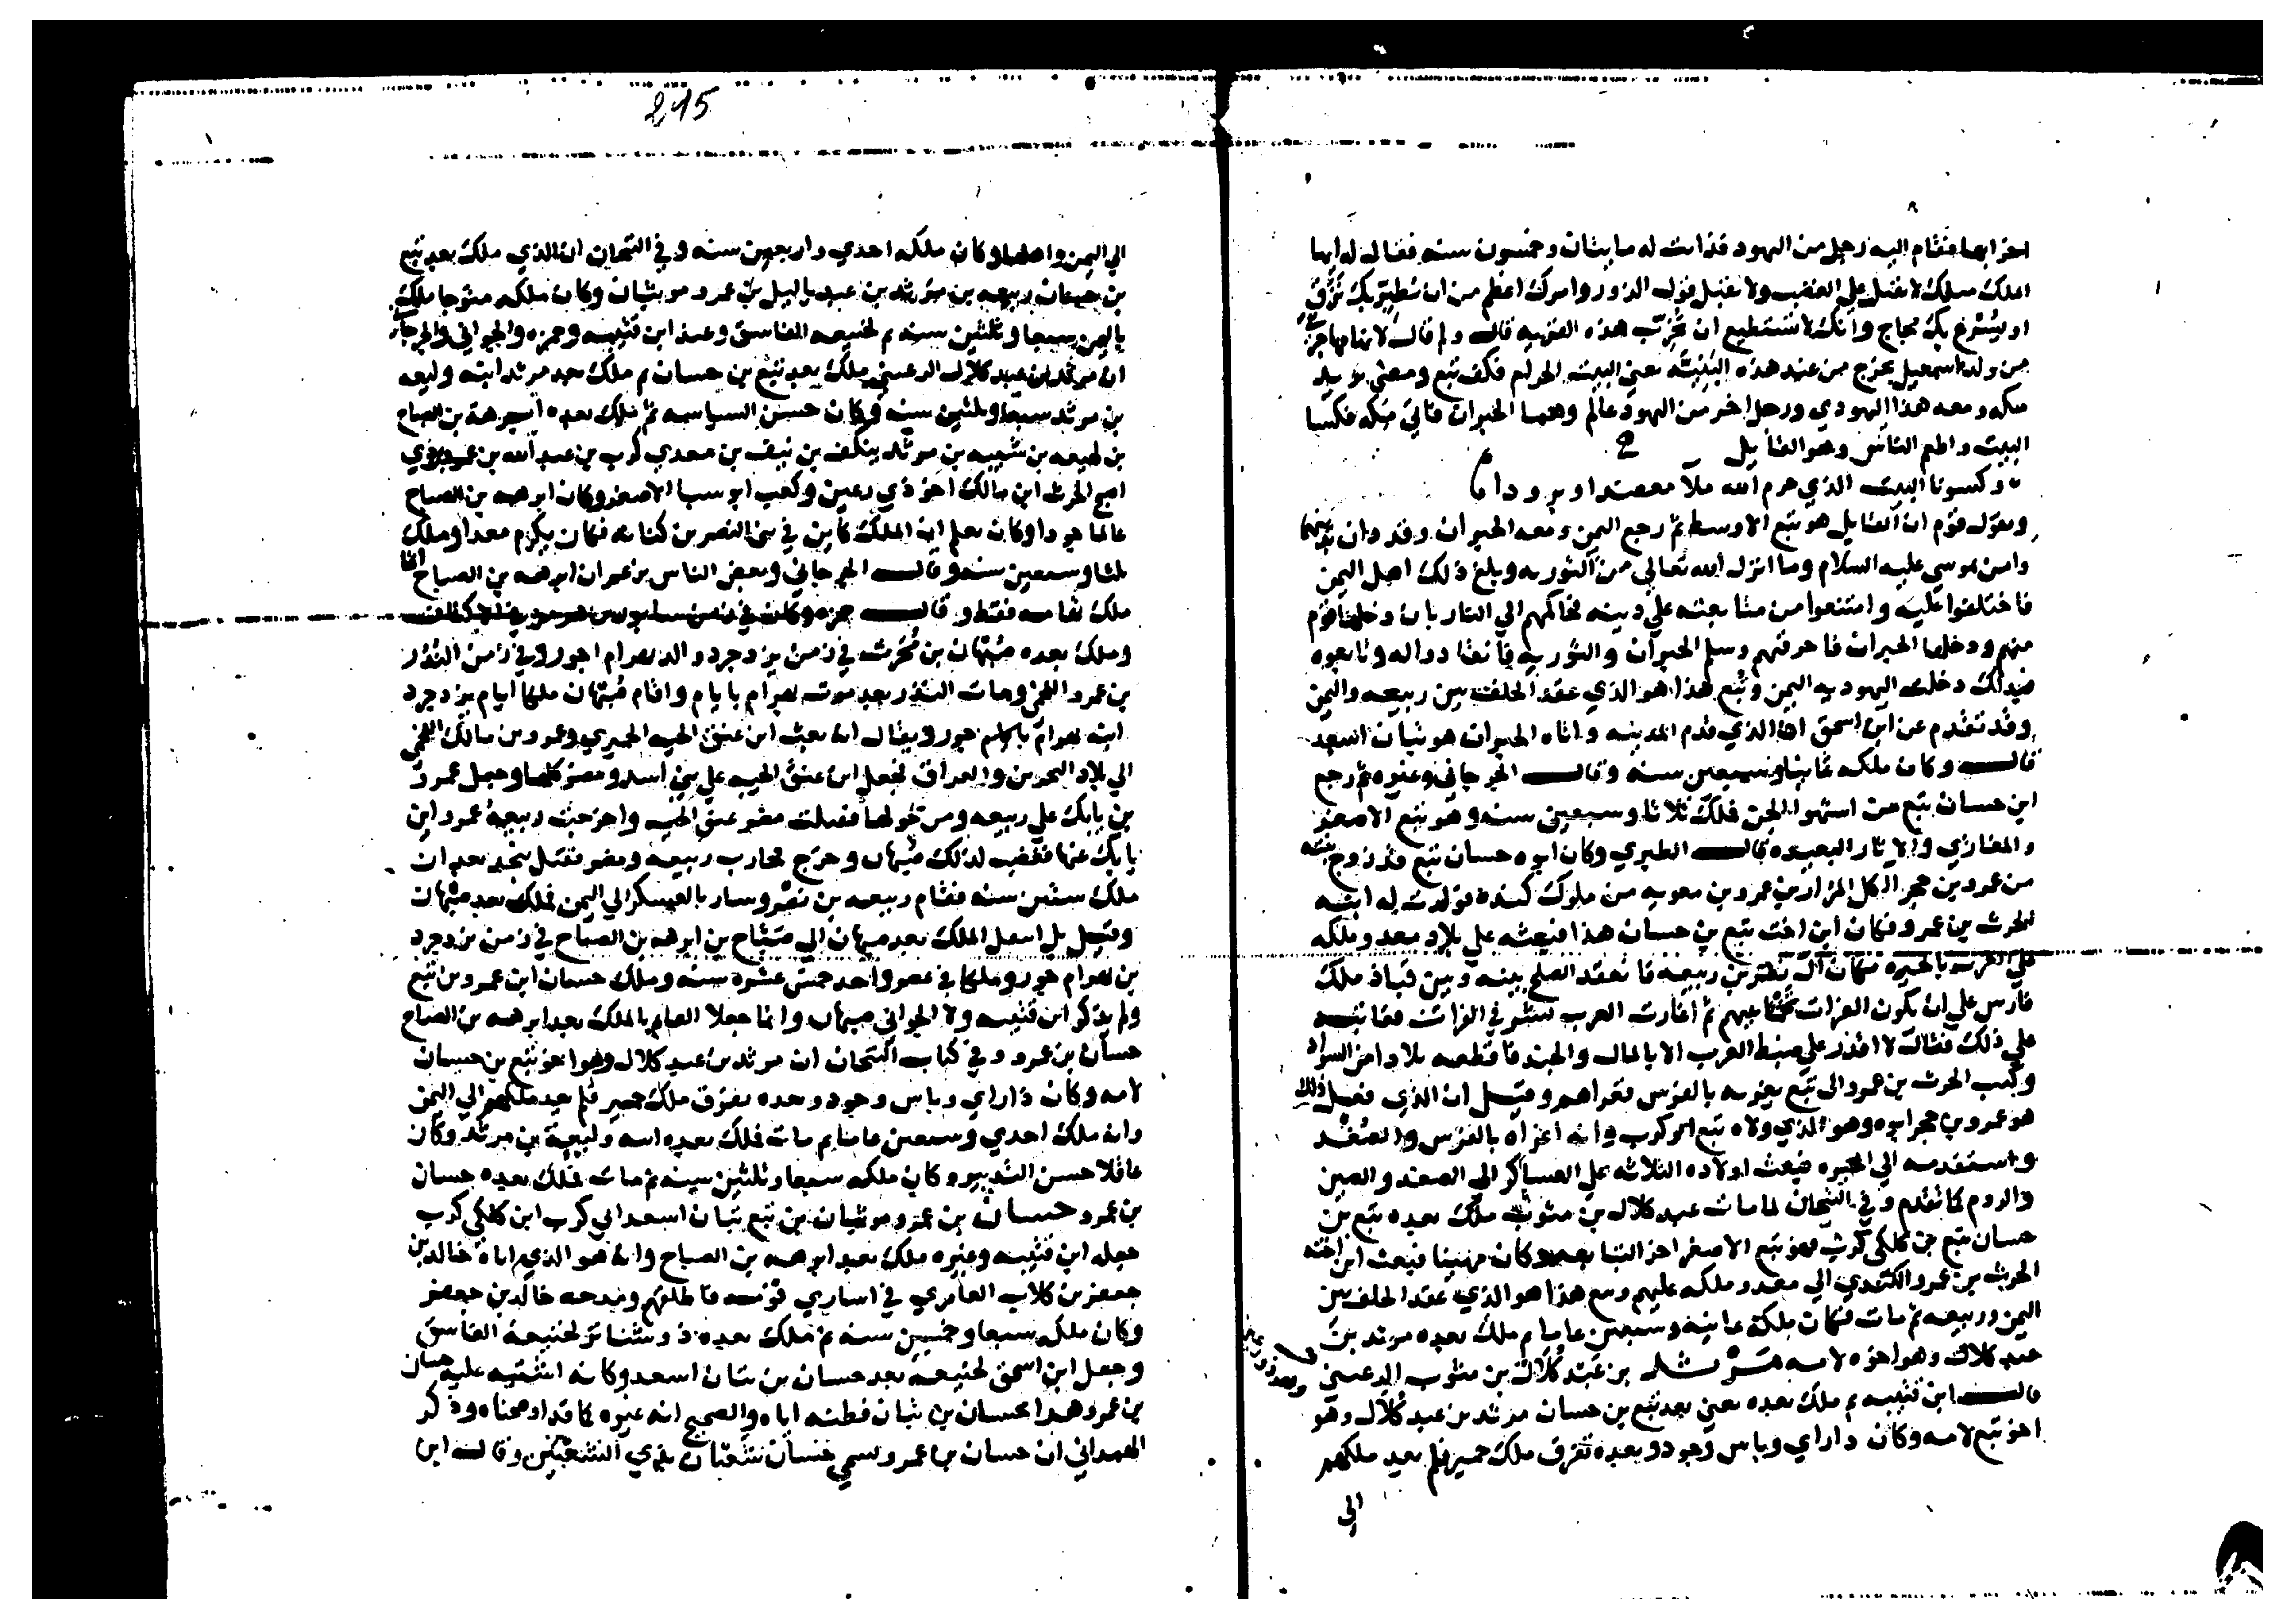 اخرابها فقام اليه رجل من اليهود قد اتت له مايتان وخمسون سنه فقال له ايها
الملك مثلك لا يقبل علي الغضب ولا يقبل قول الزور وامرك اعظم من ان يطير بك نزق
او يسرع بك لجاج وانك لا تستطيع ان تخرب هذه القريه قال ولم قال لانها مهاجر نبي
من ولد اسمعيل يخرج من عند هذه البنية يعني البيت الحرام فكف تبع ومضي يريد
مكه ومعه هذا اليهودي ورجل اخر من اليهود عالم وهما الحبران فاتي مكه فكسا
البيت واطعم الناس وهو القايل
وكسونا البيت الذي حرم الله ملآ معصدا وبرودا
ويقول قوم ان القايل هو تبع الاوسط ثم رجع اليمن ومعه الحبران وقد دان بدينهما
وامن بموسي عليه السلام وما انزله الله تعالي من التوريه وبلغ ذلك اهل اليمن
فاختلفوا عليه وامتنعوا من متابعته علي دينه فحاكمهم الي النار بان دخلها قوم
منهم ودخلها الحبران فاحرقتهم وسلم الحبران والتوريه فانقادوا له وتابعوه
فبذلك دخلت اليهوديه اليمن وتبع هذا هو الذي عقد الحلف بين ربيعه واليمن
وقد تقدم عن ابن اسحق ان الذي قدم المدينه واتاه الحبران هو تبان اسعد
قال وكان ملكه ثمانيا وسبعين سنه وقال الجرجاني وغيره ثم رجع
ابن حسان تبع من استهوا الجن فملك ثلاثا وسبعين سنه وهو تبع الاصغر
والمغازي والاثار البعيده قال الطبري وكان ابوه حسان تبع قد زوج بنته
من عمرو بن حجر اكل المرار بن عمرو بن معويه من ملوك كنده فولدت له ابنه
الحرث بن عمرو فكان ابن اخت تبع بن حسان هذا فبعثه علي بلاد معد وملكه
علي العرب بالحيره مكان آل نصر بن ربيعه فانعقد الصلح بينه وبين قباذ ملك
فارس علي ان يكون الفرات بينهم ثم اغارت العرب بشرقي الفرات فعاتبه
علي ذلك فقال لا اقدر علي ضبط العرب الا بالمال والجند فاقطعه بلادا من السواد
وكتب الحرث بن عمرو الي تبع يغريه بالفرس فغزاهم وقيل ان الذي فعل ذلك
هو عمرو بن حجر ابوه وهو الذي ولاه تبع ابو كرب وانه اغزاه بالفرس والصغد
واستقدمه الي الحيره فبعث اولاده الثلاثه علي العساكر الي الصغد والصين
والروم كما تقدم وفي التيجان لما مات عبد كلال بن مثوب ملك بعده تبع بن
حسان تبع بن كلكي كرب وهو تبع الاصغر اخر التبابعه وكان مهيبا فبعث ابن اخته
الحرث بن عمرو الكندي الي معد وملكه عليهم وتبع هذا هو الذي عقد الحلف بين
اليمن وربيعه ثم مات فكان ملكه ثمانيه وسبعين عاما ثم ملك بعده مرثد بن
عبد كلال وهو اخوه لامه مرثد بن عبد كلال بن مثوب الرعيني
قال ابن قتيبه ثم ملك بعده يعني بعد تبع بن حسان مرثد بن عبد كلال وهو
اخو تبع لامه وكان ذا راي وباس وجود وبعده تفرق ملك حمير فلم يعد ملكهم
الي
245
الي اليمن واهلها وكان ملكه احدي واربعين سنه وفي التيجان ان الذي ملك بعد تبع
بن ربيعه بن مرثد بن عبد ياليل بن عمرو مو بثيان وكان ملكه متوجا ملك
باليمن سبعا وثلثين سنه ثم لخنيعه الفاسق وعند ابن قتيبه وحمزه والجواني والجرجاني
ان مرثد بن عبد كلال الرعيني ملك بعد تبع بن حسان ثم ملك بعد مرثد ابنه وليعه
بن مرثد سبعا وثلثين سنه وكان حسن السياسه ثم ملك بعده ابرهة بن الصباح
بن لهيعه بن شيبه بن مرثد ينكف بن نيف بن معدي كرب بن عبد الله بن عمرو بن ذي
اصبح الحرث ابن مالك اخو ذي رعين وكعب ابو سبا الاصغر وكان ابرهه بن الصباح
عالما جوادا وكان يعلم ان الملك كاين في بني النضر بن كنانه فكان يكرم معدا وملك
ثلثا وسبعين سنه وقال الجرجاني وبعض الناس يزعم ان ابرهه بن الصباح انما
ملك تهامه فقط وقال حمزه وكان في زمن سابور بن هرمز ذي الاكتاف
وملك بعده صهبان بن محرث في زمن يزدجرد والد بهرام جور وفي زمن المنذر
بن عمرو اللخمي ومات المنذر بعد موت بهرام بايام واقام صهبان ملكا ايام يزدجرد
ابنه بهرام جور ويقال انه بعث ابن عنق الحيه الحميري وعمرو بن مالك اللخمي
الي بلاد البحرين والعراق فجعل ابن عنق الحيه علي بني اسد ومضر كلها وجعل عمرو
بن بابك علي ربيعه ومن حولها فقتلت مضر عنق الحيه واخرجت ربيعه عمرو ابن
بابك عنها فغضب لذلك صهبان وخرج محارب ربيعه ومضر فقتل بنجد بعد ان
ملك ستين سنه فقام ربيعه بن نصر وسار بالعسكر الي اليمن فملك بعد صهبان
وقيل بل انتقل الملك بعد صهبان الي صباح بن ابرهه بن الصباح في زمن يزدجرد
بن بهرام جور وملكا في عصر واحد خمس عشره سنه وملك حسان ابن عمرو بن تبع
ولم يذكر ابن قتيبه ولا الجواني صهبان وانما جعلا القايم بالملك بعد ابرهه بن الصباح
حسان بن عمرو وفي كتاب التيجان ان مرثد بن عبد كلال وهو اخو تبع بن حسان
لامه وكان ذا راي وباس وجود وبعده تفرق ملك حمير فلم يعد ملكهم الي اليمن
وانه ملك احدي وسبعين عاما ثم مات فملك بعده ابنه وليعة بن مرثد وكان
عاقلا حسن التدبير وكان ملكه سبعا وثلثين سنه ثم مات فملك بعده حسان
بن عمرو حسان بن عمرو مو بثيان بن تبع تبان اسعد ابي كرب ابن كلكي كرب
جعله ابن قتيبه وغيره ملك بعد ابرهه بن الصباح وانه هو الذي اتاه خالد بن
جعفر بن كلاب العامري في اساري قومه فاطلقهم ومدحه خالد بن جعفر
وكان ملكه سبعا وخمسين سنه ثم ملك بعده ذو شناتر لخنيعة الفاسق
وجعل ابن اسحق لخنيعه بعد حسان بن تبان اسعد وكانه اشتبه عليه حسان
بن عمرو هذا بحسان بن تبان فظنه اياه والصحيح انه غيره كما قد اوضحناه وذكر
الهمداني ان حسان بن عمرو يسمي حسان شعبان بذي الشعبين وقال ابن